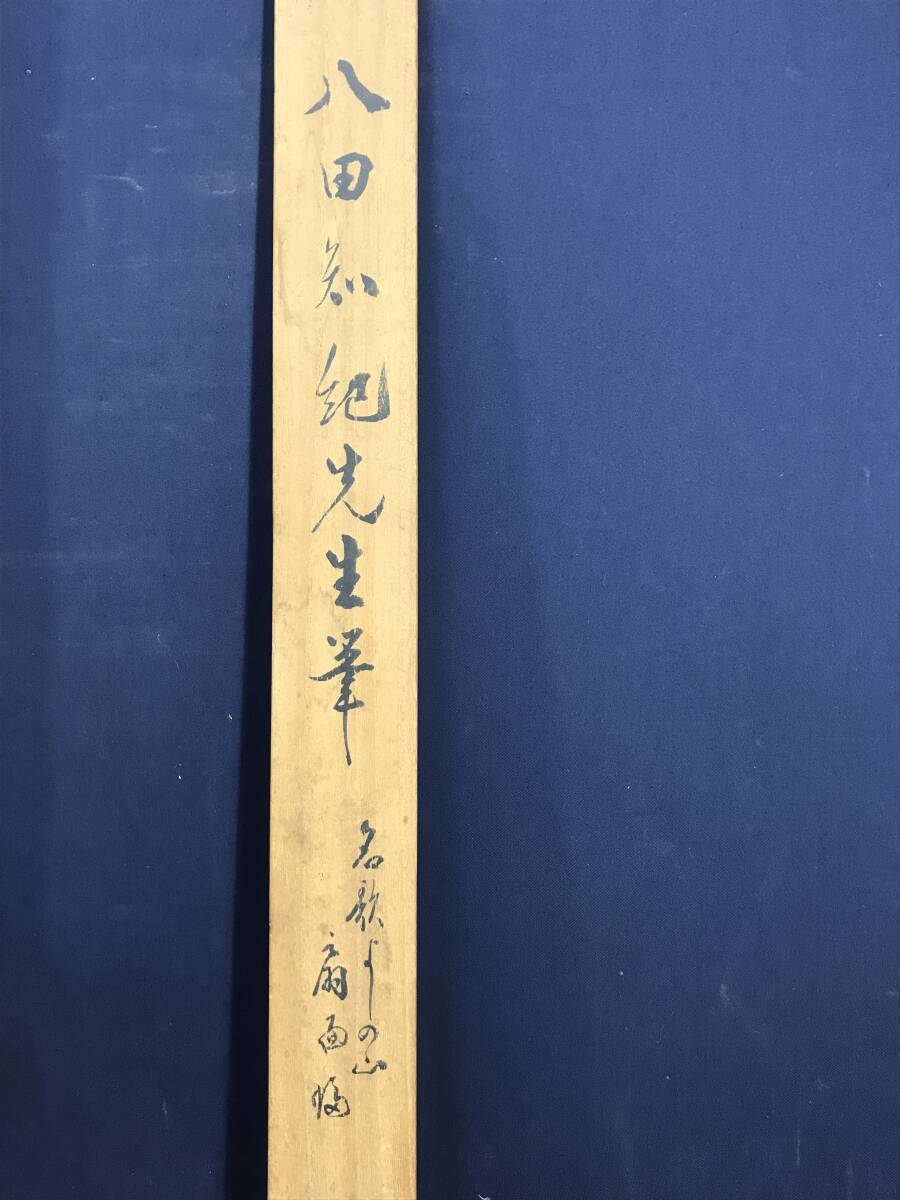 八田知紀先生筆
名歌よしの山
扇面幅